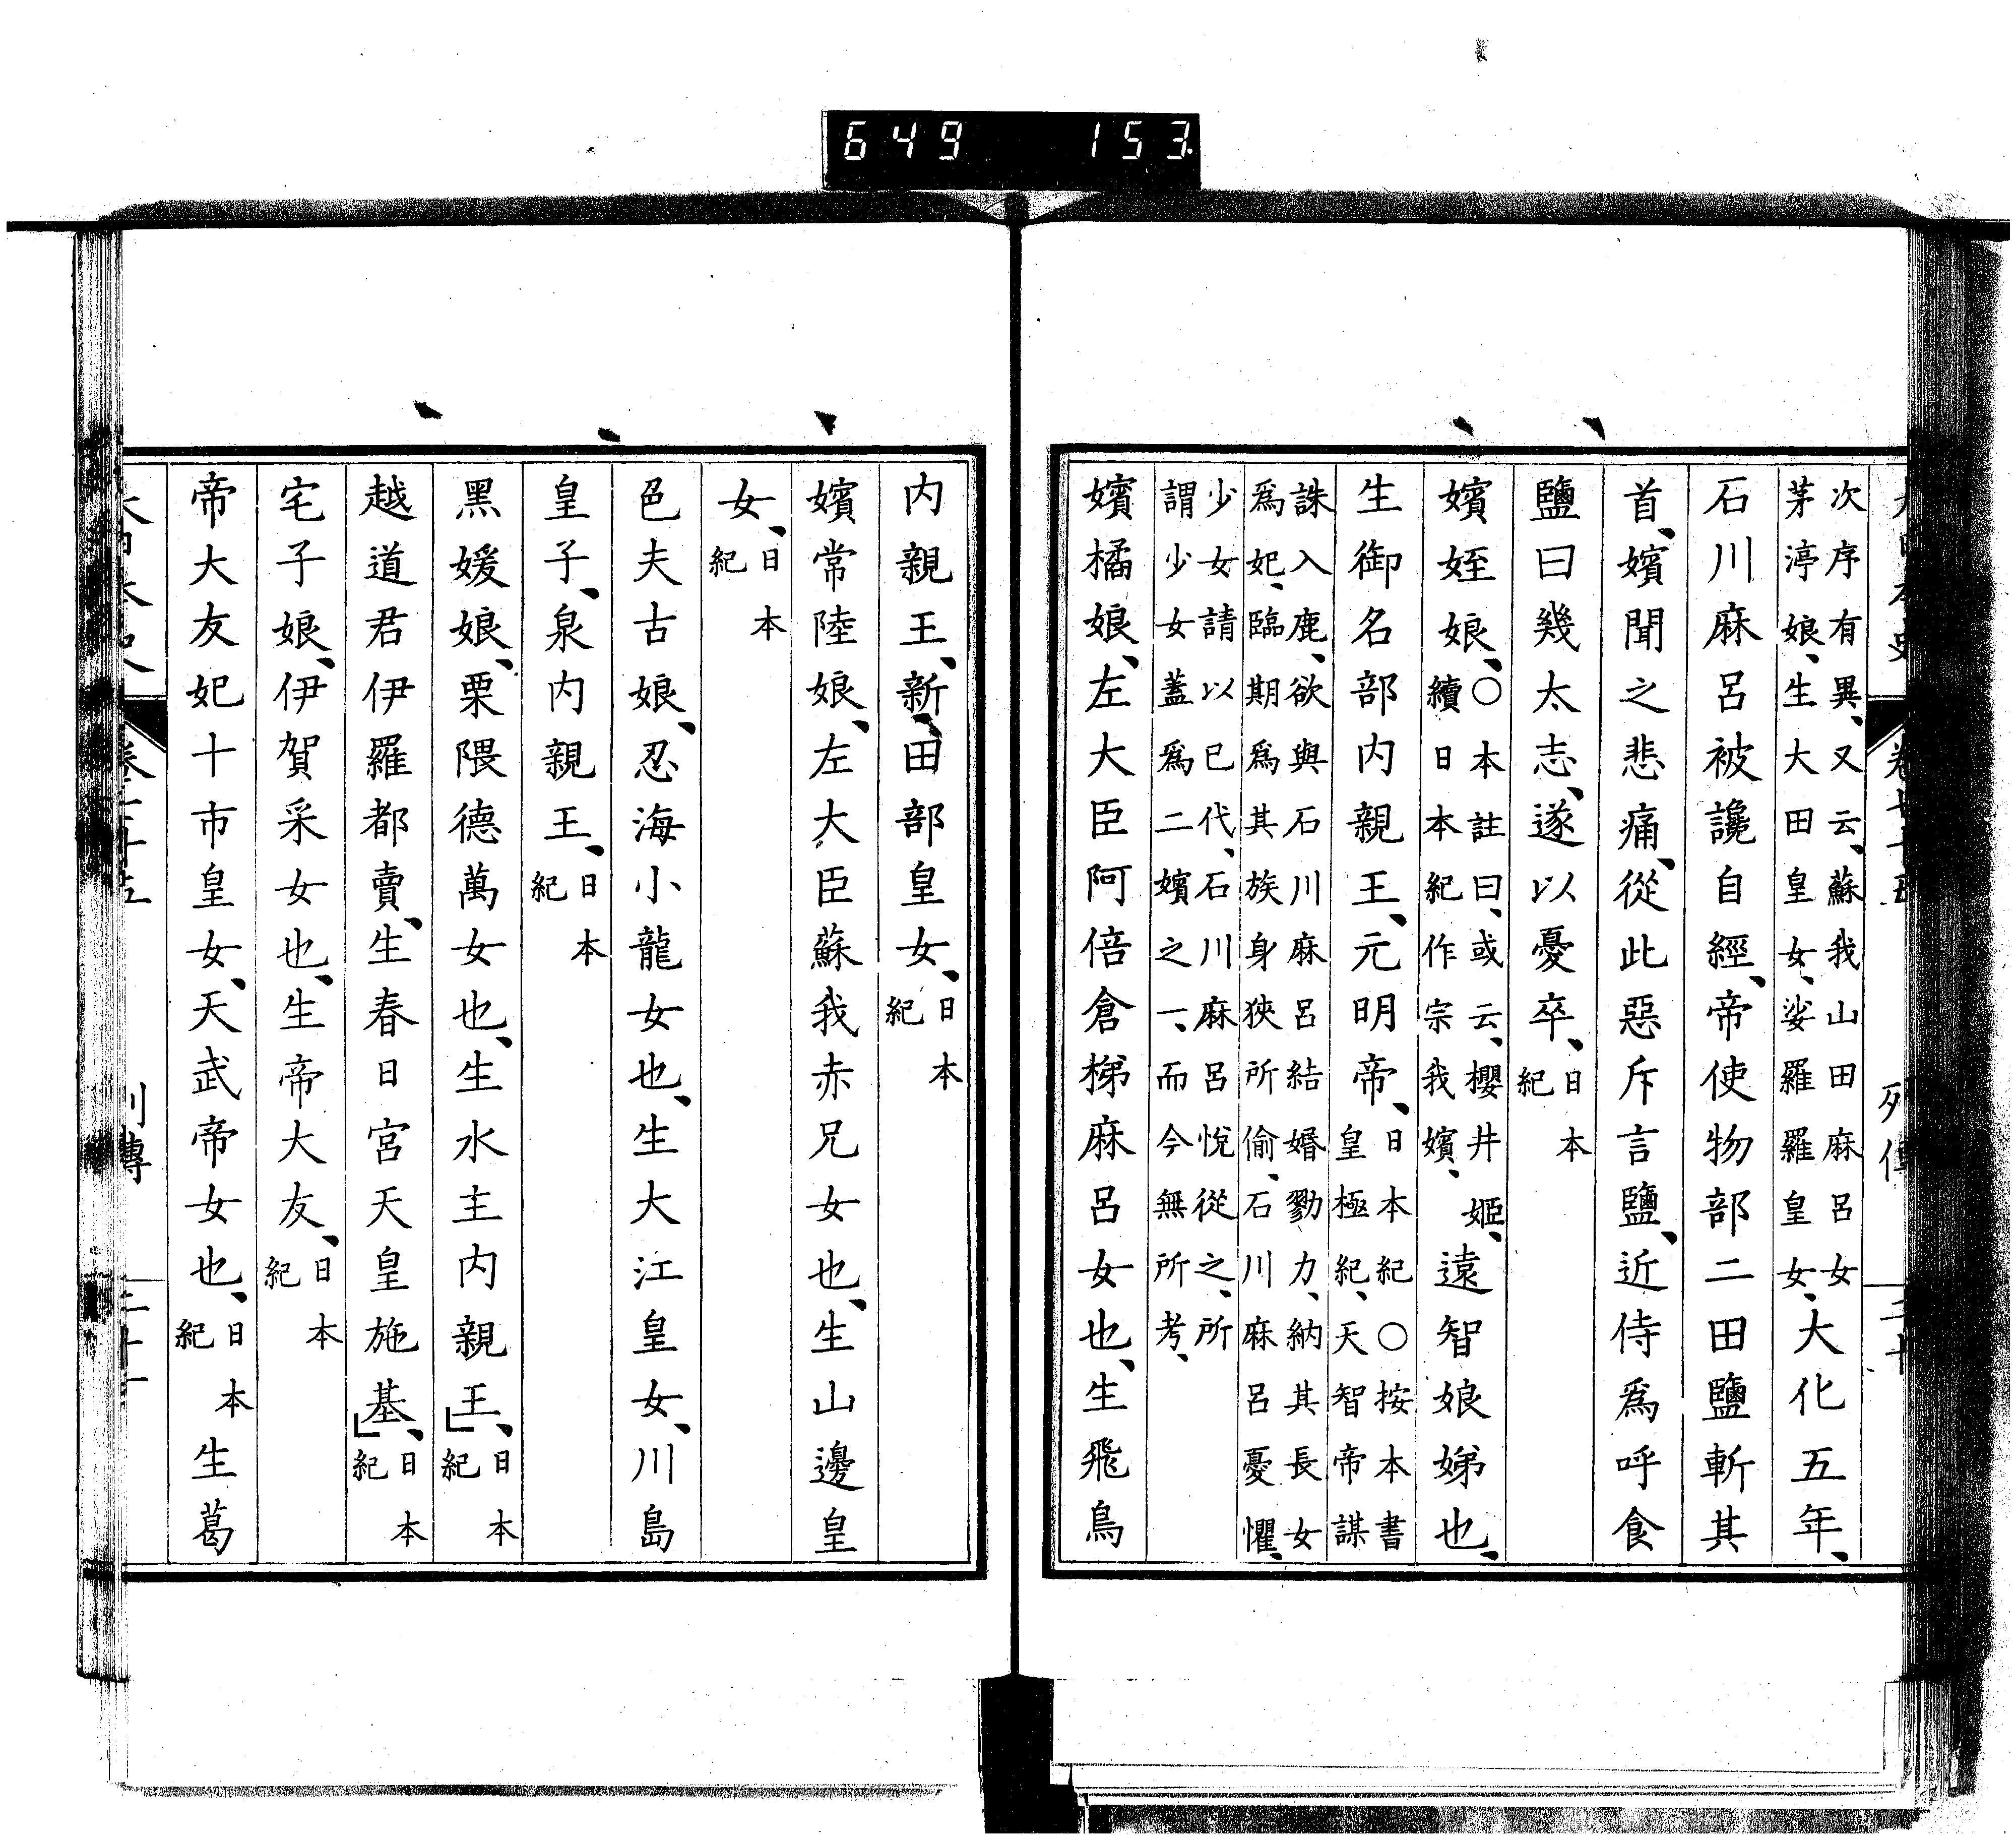 649 153
次序有異、又云、蘇我山田麻呂女
茅渟娘、生大田皇女、娑羅羅皇女、大化五年、
石川麻呂被讒自經、帝使物部二田鹽斬其
首、嬪聞之悲痛、從此惡斥言鹽、近侍爲呼食
鹽曰幾太志、遂以憂卒、日本紀
嬪姪娘、○本註曰、或云、櫻井姬、續日本紀作宗我嬪、遠智娘娣也、
生御名部内親王、元明帝、日本紀○按本書皇極紀、天智帝謀
誅入鹿、欲與石川麻呂結婚勠力、納其長女
爲妃、臨期爲其族身狹所偷、石川麻呂憂懼、
少女請以已代、石川麻呂悅從之、所
謂少女蓋爲二嬪之一、而今無所考、
嬪橘娘、左大臣阿倍倉梯麻呂女也、生飛鳥
内親王、新田部皇女、日本紀
嬪常陸娘、左大臣蘇我赤兄女也、生山邊皇
女、日本紀
色夫古娘、忍海小龍女也、生大江皇女、川島
皇子、泉内親王、日本紀
黑媛娘、栗隈德萬女也、生水主内親王、日本紀
越道君伊羅都賣、生春日宮天皇施基、日本紀
宅子娘、伊賀采女也、生帝大友、日本紀
帝大友妃十市皇女、天武帝女也、日本紀生葛
列傳